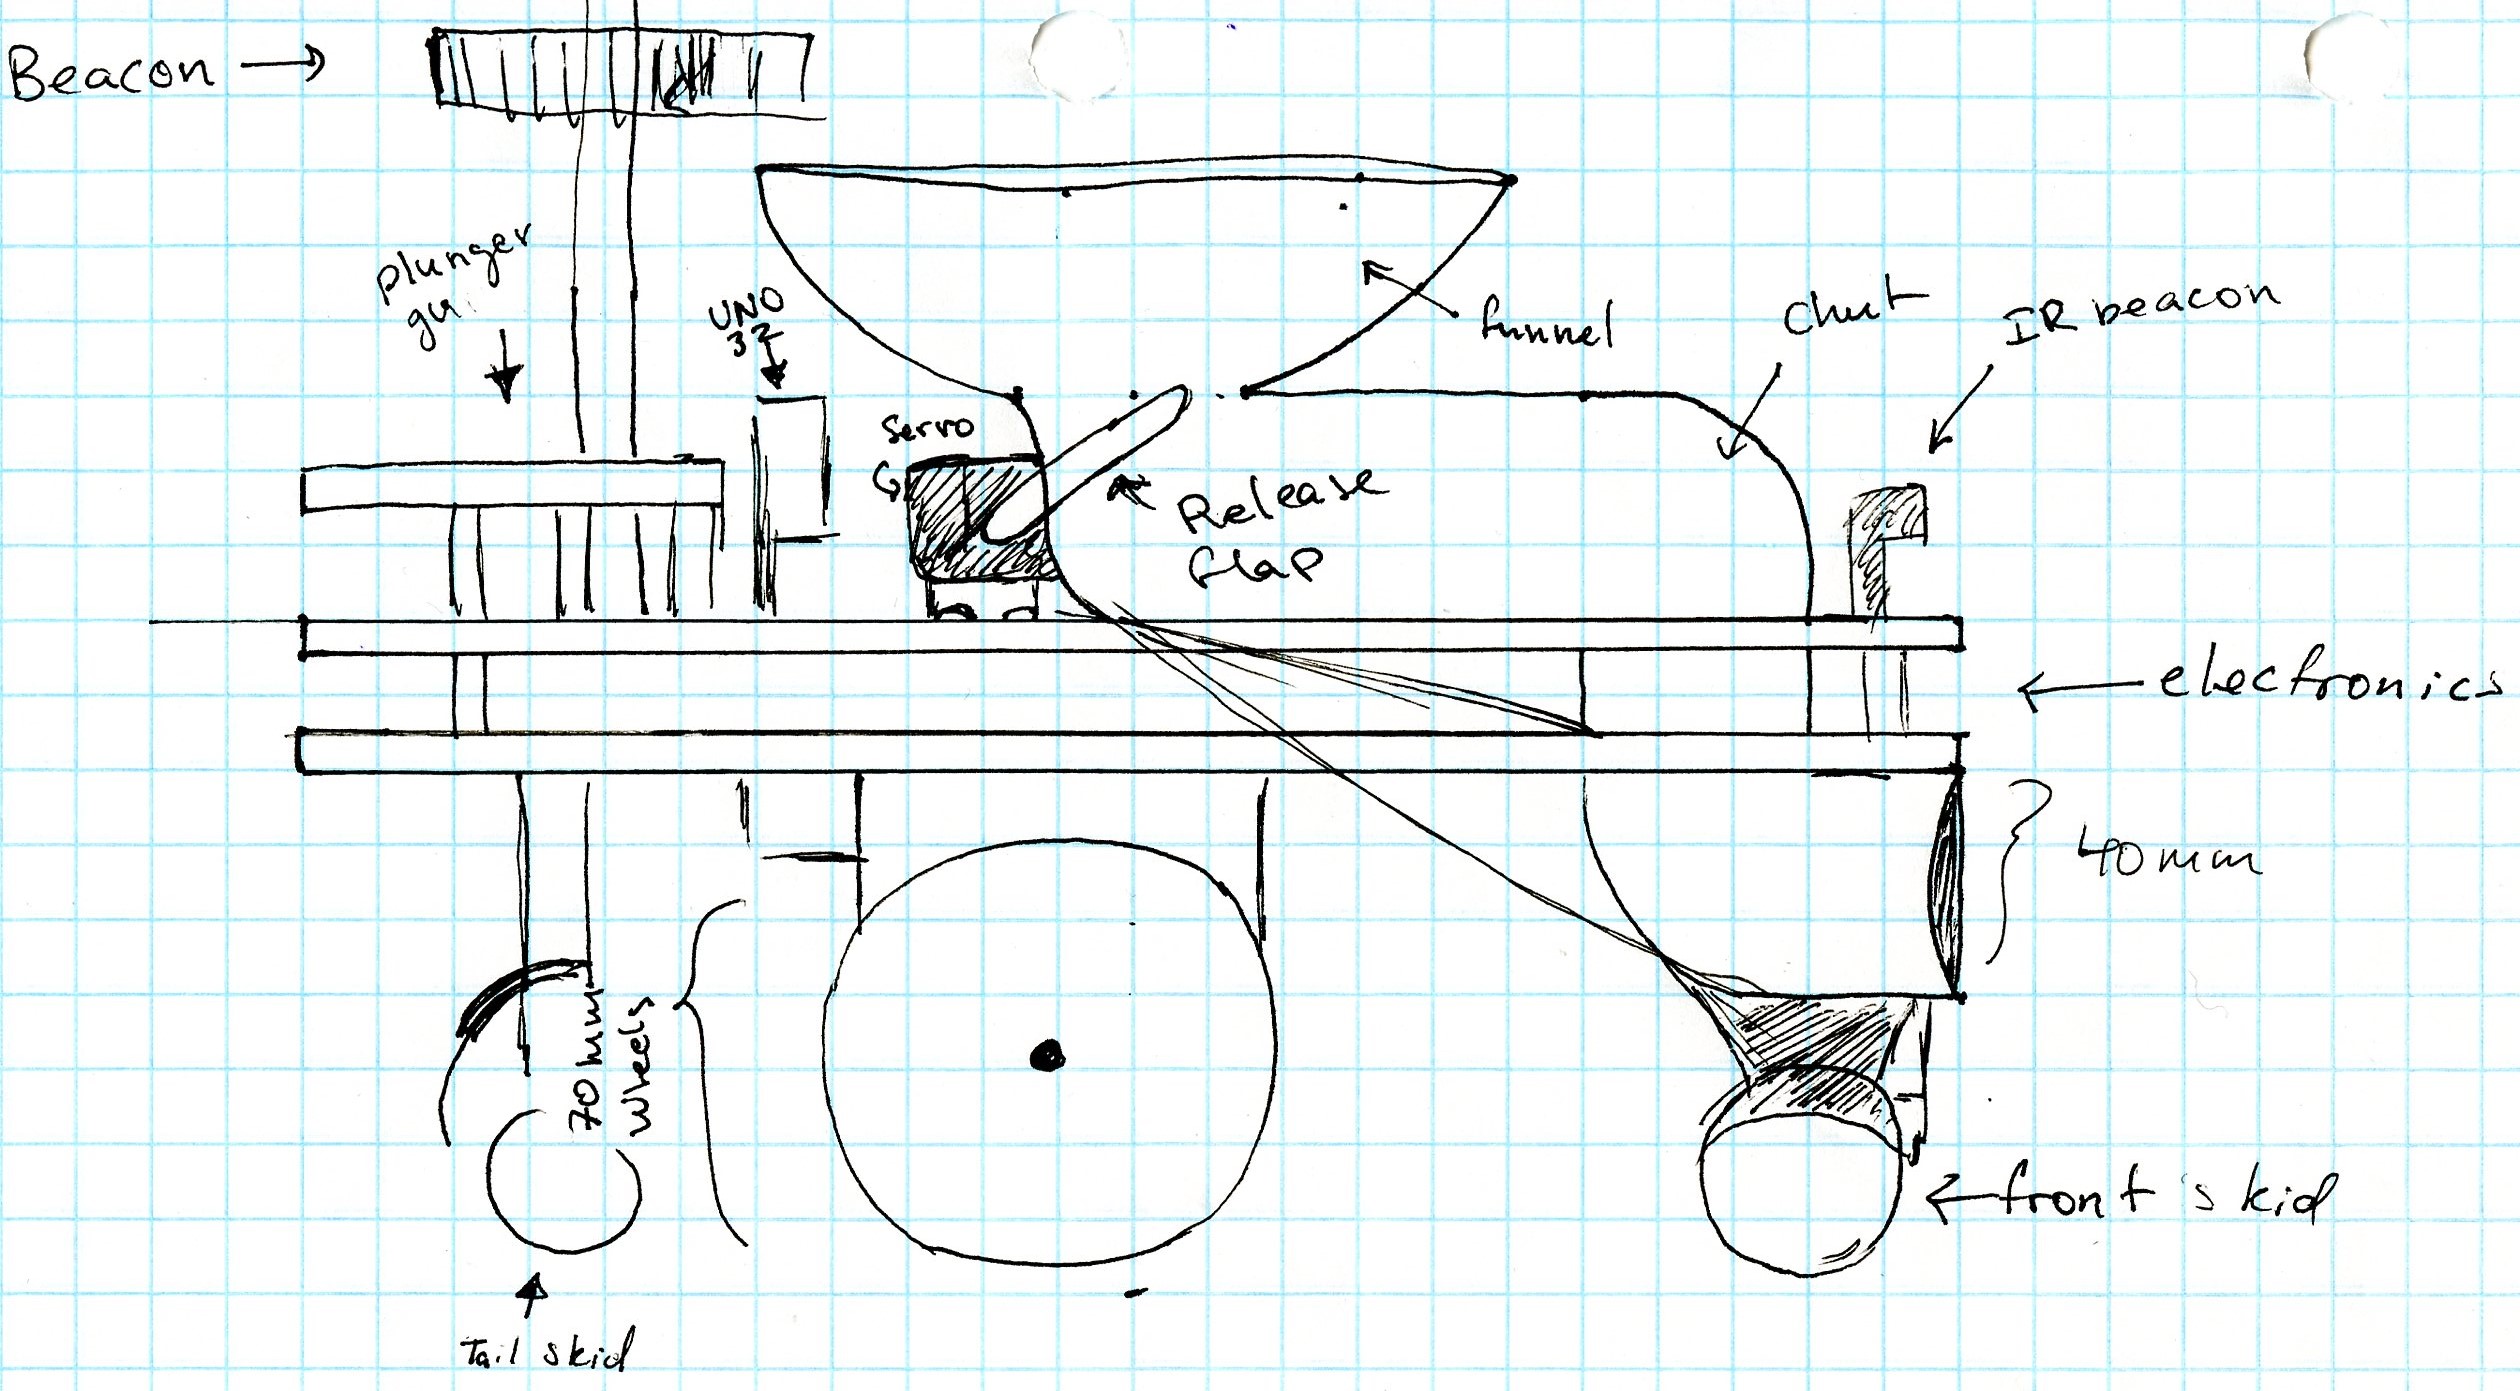 Beacon
plunger
UNO
32
funnel
Chut
IR beacon
Servo
Release
flap
electronics
40mm
70mm
wheels
front skid
Tail skid